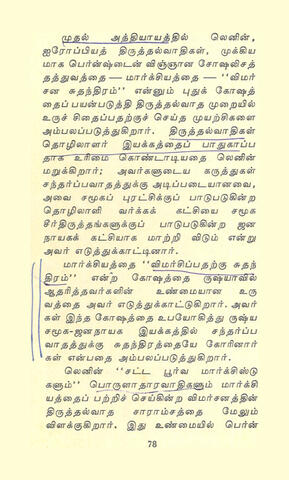 முதல் அத்தியாயத்தில் லெனின்,
ஐரோப்பியத் திருத்தல்வாதிகள், முக்கிய
மாக பெர்ன்ஷ்டைன் விஞ்ஞான சோஷலிசத்
தத்துவத்தை — மார்க்சியத்தை — ‘‘விமர்
சன சுதந்திரம்’’ என்னும் புதுக் கோஷத்
தைப் பயன்படுத்தி திருத்தல்வாத முறையில்
உருச் சிதைப்பதற்குச் செய்த முயற்சிகளை
அம்பலப்படுத்துகிறார். திருத்தல்வாதிகள்
தொழிலாளர் இயக்கத்தைப் பாதுகாப்ப
தாக உரிமை கொண்டாடியதை லெனின்
மறுக்கிறார்; அவர்களுடைய கருத்துகள்
சந்தர்ப்பவாதத்துக்கு அடிப்படையானவை,
அவை சமூகப் புரட்சிக்குப் பாடுபடுகின்ற
தொழிலாளி வர்க்கக் கட்சியை சமூக
சீர்திருத்தங்களுக்குப் பாடுபடுகின்ற ஜன
நாயகக் கட்சியாக மாற்றி விடும் என்று
அவர் எடுத்துக்காட்டினார்.
மார்க்சியத்தை ‘‘விமர்சிப்பதற்கு சுதந்
திரம்’’ என்ற கோஷத்தை ருஷ்யாவில்
ஆதரித்தவர்களின் உண்மையான உரு
வத்தை அவர் எடுத்துக்காட்டுகிறார். அவர்
கள் இந்த கோஷத்தை உபயோகித்து ருஷ்ய
சமூக-ஜனநாயக இயக்கத்தில் சந்தர்ப்ப
வாதத்துக்கு சுதந்திரத்தையே கோரினார்
கள் என்பதை அம்பலப்படுத்துகிறார்.
லெனின் ‘‘சட்ட பூர்வ மார்க்சிஸ்டு
களும்’’ பொருளாதாரவாதிகளும் மார்க்சி
யத்தைப் பற்றிச் செய்கின்ற விமர்சனத்தின்
திருத்தல்வாத சாராம்சத்தை மேலும்
விளக்குகிறார். இது உண்மையில் பெர்ன்
78